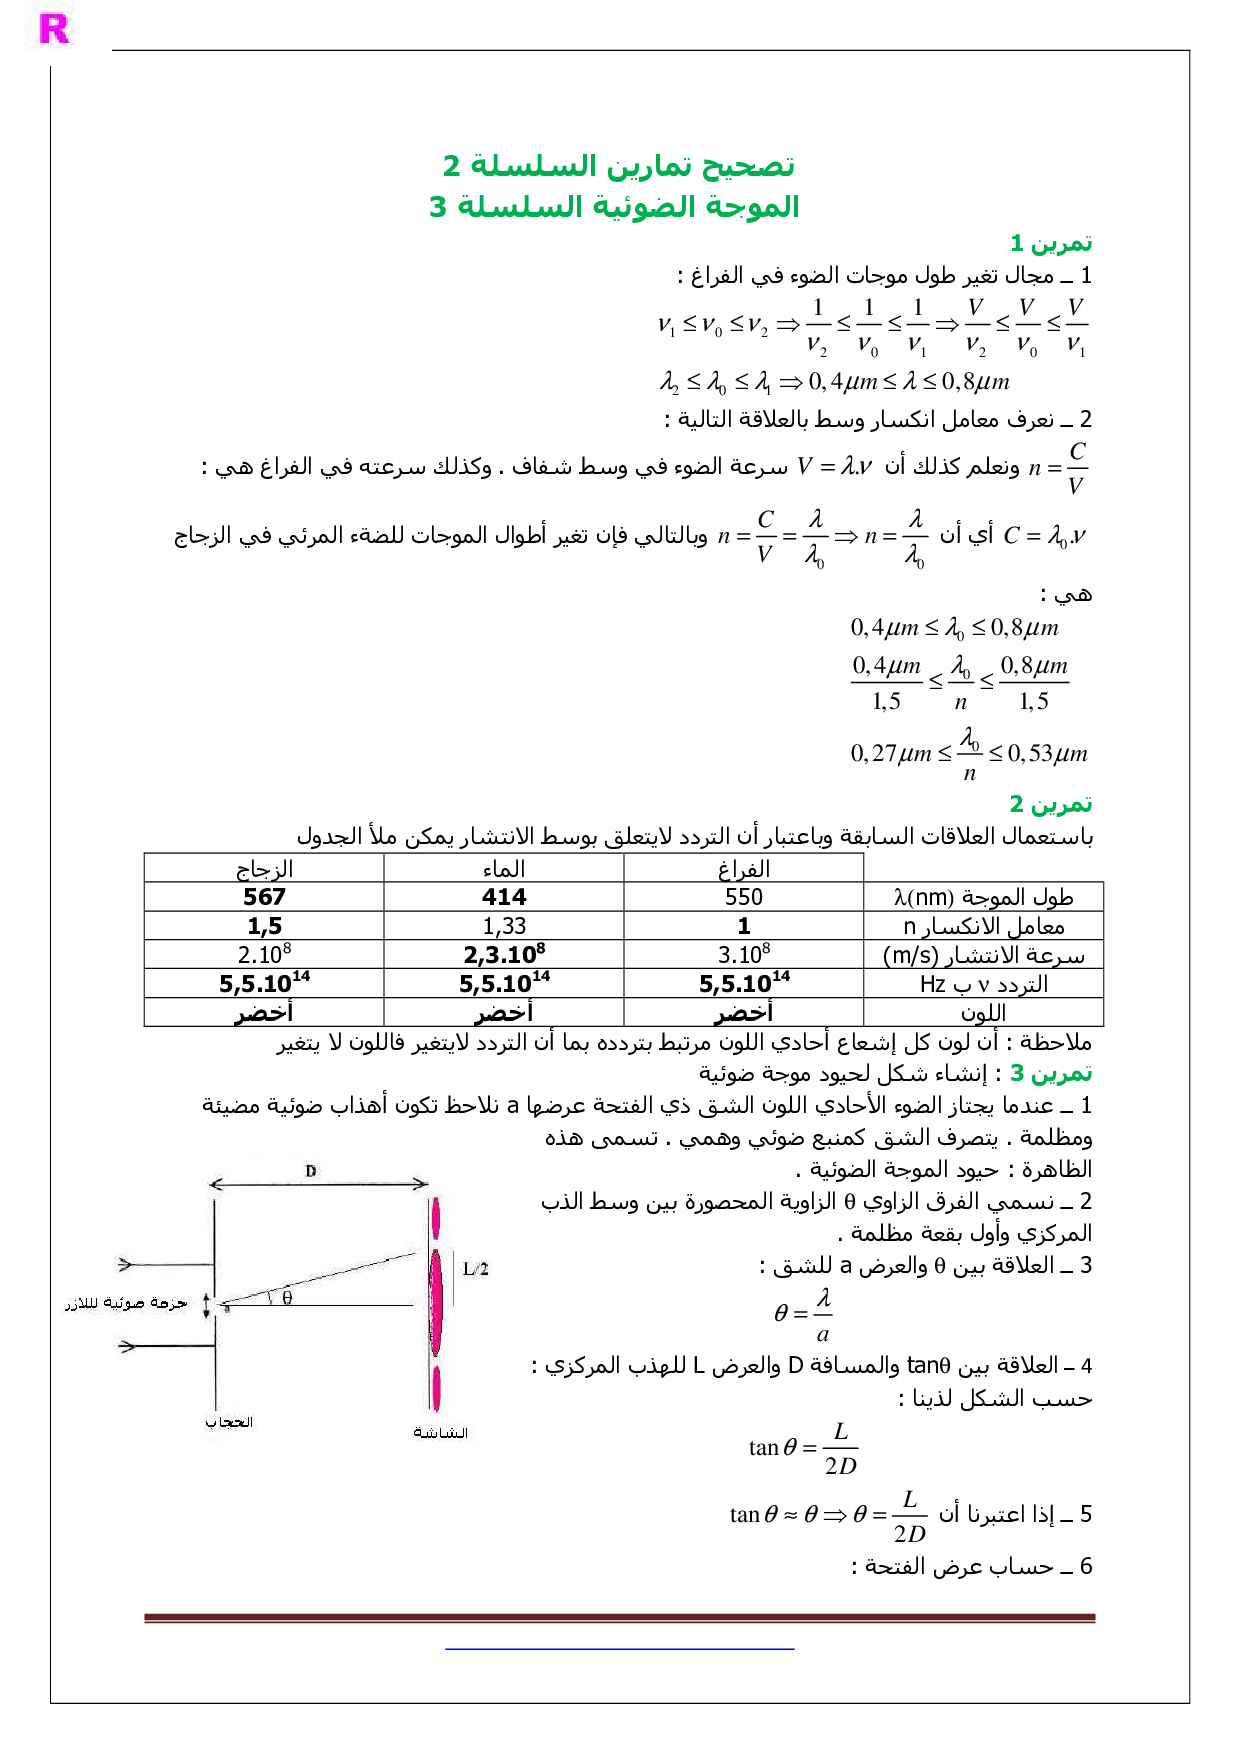 R
تصحيح تمارين السلسلة 2
الموجة الضوئية السلسلة 3
تمرين 1
1 ــ مجال تغير طول موجات الضوء في الفراغ :
ν₁ ≤ ν₀ ≤ ν₂ ⇒ 1/ν₂ ≤ 1/ν₀ ≤ 1/ν₁ ⇒ V/ν₂ ≤ V/ν₀ ≤ V/ν₁
λ₂ ≤ λ₀ ≤ λ₁ ⇒ 0,4μm ≤ λ ≤ 0,8μm
2 ــ نعرف معامل انكسار وسط بالعلاقة التالية :
n = C/V ونعلم كذلك أن V = λ.ν سرعة الضوء في وسط شفاف . وكذلك سرعته في الفراغ هي :
C = λ₀.ν أي أن n = C/V = λ/λ₀ ⇒ n = λ/λ₀ وبالتالي فإن تغير أطوال الموجات للضةء المرئي في الزجاج
هي :
0,4μm ≤ λ₀ ≤ 0,8μm
0,4μm/1,5 ≤ λ₀/n ≤ 0,8μm/1,5
0,27μm ≤ λ₀/n ≤ 0,53μm
تمرين 2
باستعمال العلاقات السابقة وباعتبار أن التردد لايتعلق بوسط الانتشار يمكن ملأ الجدول
الفراغ الماء الزجاج
طول الموجة λ(nm) 550 414 567
معامل الانكسار n 1 1,33 1,5
سرعة الانتشار (m/s) 3.10⁸ 2,3.10⁸ 2.10⁸
التردد ν ب Hz 5,5.10¹⁴ 5,5.10¹⁴ 5,5.10¹⁴
اللون أخضر أخضر أخضر
ملاحظة : أن لون كل إشعاع أحادي اللون مرتبط بتردده بما أن التردد لايتغير فاللون لا يتغير
تمرين 3 : إنشاء شكل لحيود موجة ضوئية
1 ــ عندما يجتاز الضوء الأحادي اللون الشق ذي الفتحة عرضها a نلاحظ تكون أهذاب ضوئية مضيئة
ومظلمة . يتصرف الشق كمنبع ضوئي وهمي . تسمى هذه
الظاهرة : حيود الموجة الضوئية .
2 ــ نسمي الفرق الزاوي θ الزاوية المحصورة بين وسط الذب
المركزي وأول بقعة مظلمة .
3 ــ العلاقة بين θ والعرض a للشق :
θ = λ/a
4 ــ العلاقة بين tanθ والمسافة D والعرض L للهذب المركزي :
حسب الشكل لذينا :
tan θ = L/2D
5 ــ إذا اعتبرنا أن tan θ ≈ θ ⇒ θ = L/2D
6 ــ حساب عرض الفتحة :
D
L/2
θ
a
حزمة ضوئية لللازر
الحجاب
الشاشة